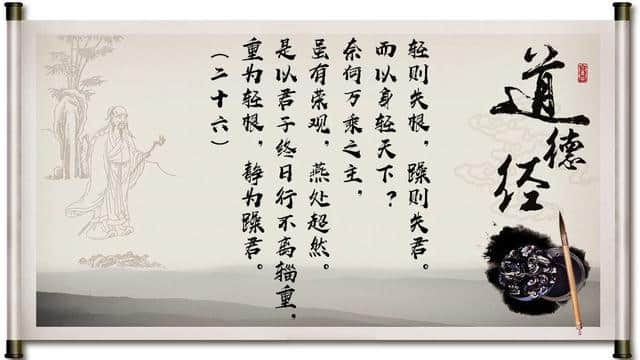 道德经
(二十六)
重为轻根,静为躁君。
是以君子终日行不离辎重,
虽有荣观,燕处超然。
奈何万乘之主,
而以身轻天下?
轻则失根,躁则失君。